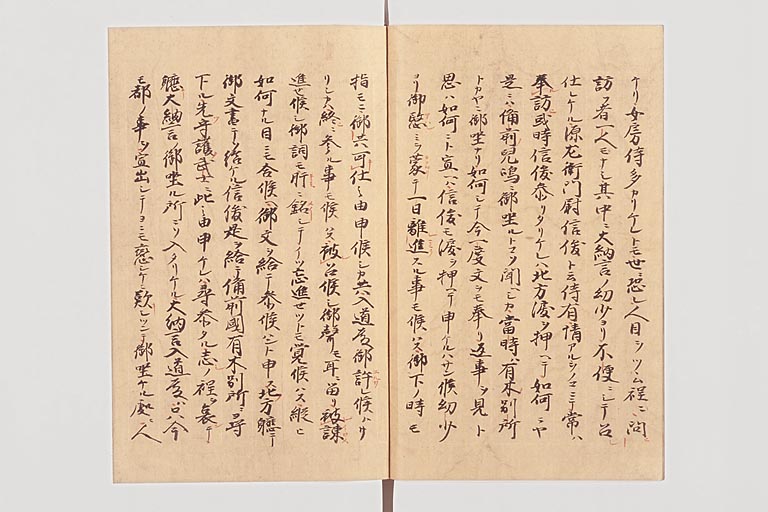 ケリ女房侍多カリケレトモ世ニ恐レ人目ヲツヽム程ニ問
訪フ者一人モナシ其中ニ大納言ノ幼少ヨリ不便ニシテ召
仕レケル源左衛門尉信俊ト云侍有情アルシノコミニテ常ハ
奉訪或時信俊参リタリケレハ北方涙ヲ押ヘテ如何ニヤ
是ニハ備前児嶋ニ御坐ルトコソ聞ヘシカ当時ハ有木別所
トカヤニ御坐ナリ如何シテ今一度文ヲモ奉リ返事ヲ見ト
思ハ如何ニト宣ハ信俊モ涙ヲ押ヘテ申ケルハサン候幼少
ヨリ御愍ミヲ蒙テ一日離進スル事モ候ハス御下ノ時モ
指モニ御共可仕之由申候シカ共入道殿御許シ候ハサ
リシハ終ニ参ル事モ候ハス被召候シ御聲モ耳ニ留リ被諌
進セ候シ御詞モ肝ニ銘シテイツ忘進セツトモ覚候ハス縦ヒ
如何ナル目ニモ合候ヘ御文ヲ給テ参候ハント申ス北方軈テ
御文書テソ給ケル信俊是ヲ給テ備前國有木別所ニ尋
下ル先守護武士ニ此之由申ケレハ尋参タル志ノ程ヲ哀テ
軈大納言ノ御坐ル所ニソ入タリケル大納言入道殿ハ只今
モ都ノ事ヲ宣出シテヨニモ恋シケニ歎シツミテ御坐ケル處ニ人